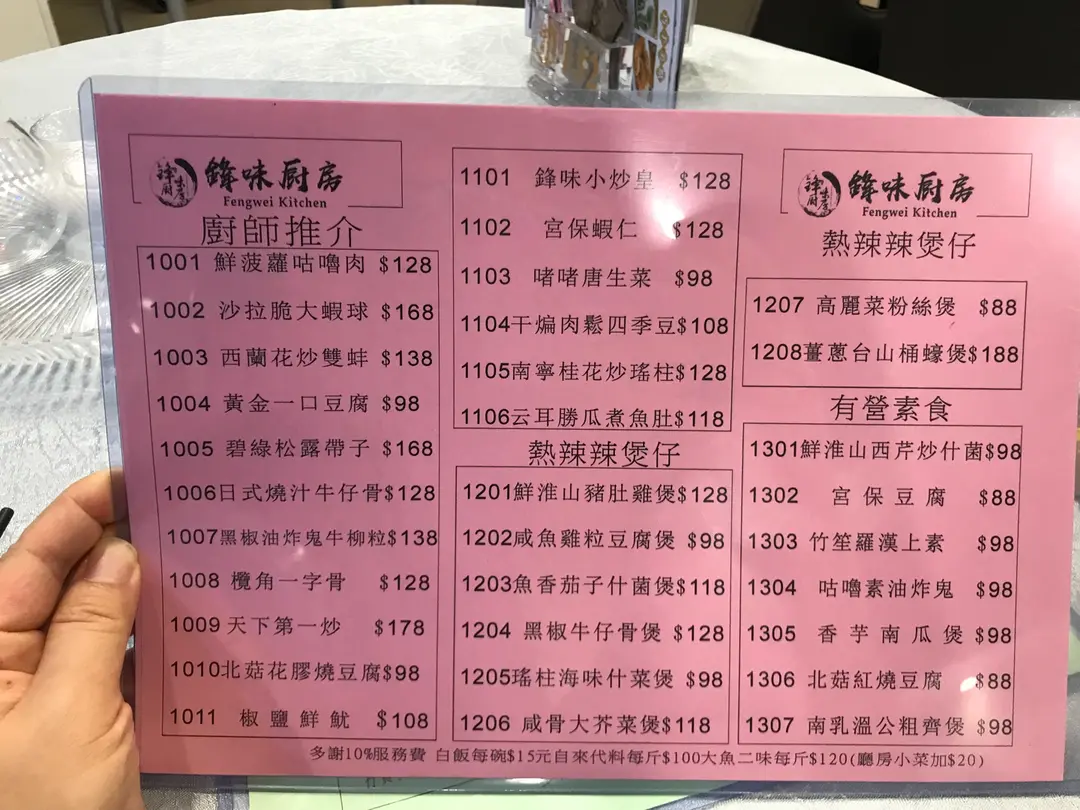 鋒味厨房
Fengwei Kitchen
廚師推介
1001 鮮菠蘿咕嚕肉 $128
1002 沙拉脆大蝦球 $168
1003 西蘭花炒雙蚌 $138
1004 黃金一口豆腐 $98
1005 碧綠松露帶子 $168
1006日式燒汁牛仔骨$128
1007黑椒油炸鬼牛柳粒$138
1008 欖角一字骨 $128
1009 天下第一炒 $178
1010北菇花膠燒豆腐$98
1011 椒鹽鮮魷 $108
1101 鋒味小炒皇 $128
1102 宮保蝦仁 $128
1103 啫啫唐生菜 $98
1104干煸肉鬆四季豆$108
1105南寧桂花炒瑤柱$128
1106云耳勝瓜煮魚肚$118
熱辣辣煲仔
1201鮮淮山豬肚雞煲$128
1202咸魚雞粒豆腐煲 $98
1203魚香茄子什菌煲$118
1204 黑椒牛仔骨煲 $128
1205瑤柱海味什菜煲 $98
1206 咸骨大芥菜煲$118
鋒味厨房
Fengwei Kitchen
熱辣辣煲仔
1207 高麗菜粉絲煲 $88
1208薑蔥台山桶蠔煲$188
有營素食
1301鮮淮山西芹炒什菌$98
1302 宮保豆腐 $88
1303 竹笙羅漢上素 $98
1304 咕嚕素油炸鬼 $98
1305 香芋南瓜煲 $98
1306 北菇紅燒豆腐 $88
1307 南乳溫公粗齊煲 $98
多謝10%服務費 白飯每碗$15元自來代料每斤$100大魚二味每斤$120(廳房小菜加$20)